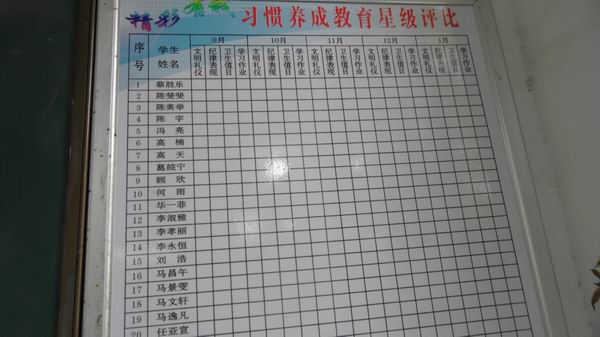 精彩 有我 习惯养成教育星级评比
序号 学生姓名 9月 10月 11月 12月 1月
文明礼仪 纪律表现 卫生值日 学习作业 文明礼仪 纪律表现 卫生值日 学习作业 文明礼仪 纪律表现 卫生值日 学习作业 文明礼仪 纪律表现 卫生值日 学习作业 文明礼仪 纪律表现 卫生值日 学习作业
1 蔡胜乐
2 陈斐斐
3 陈美举
4 陈宇
5 冯亮
6 高楠
7 高天
8 葛皖宁
9 顾欣
10 何雨
11 华一菲
12 李淑雅
13 李孝丽
14 李永恒
15 刘浩
16 马昌午
17 马景雯
18 马文轩
19 马逸凡
20 任亚宣